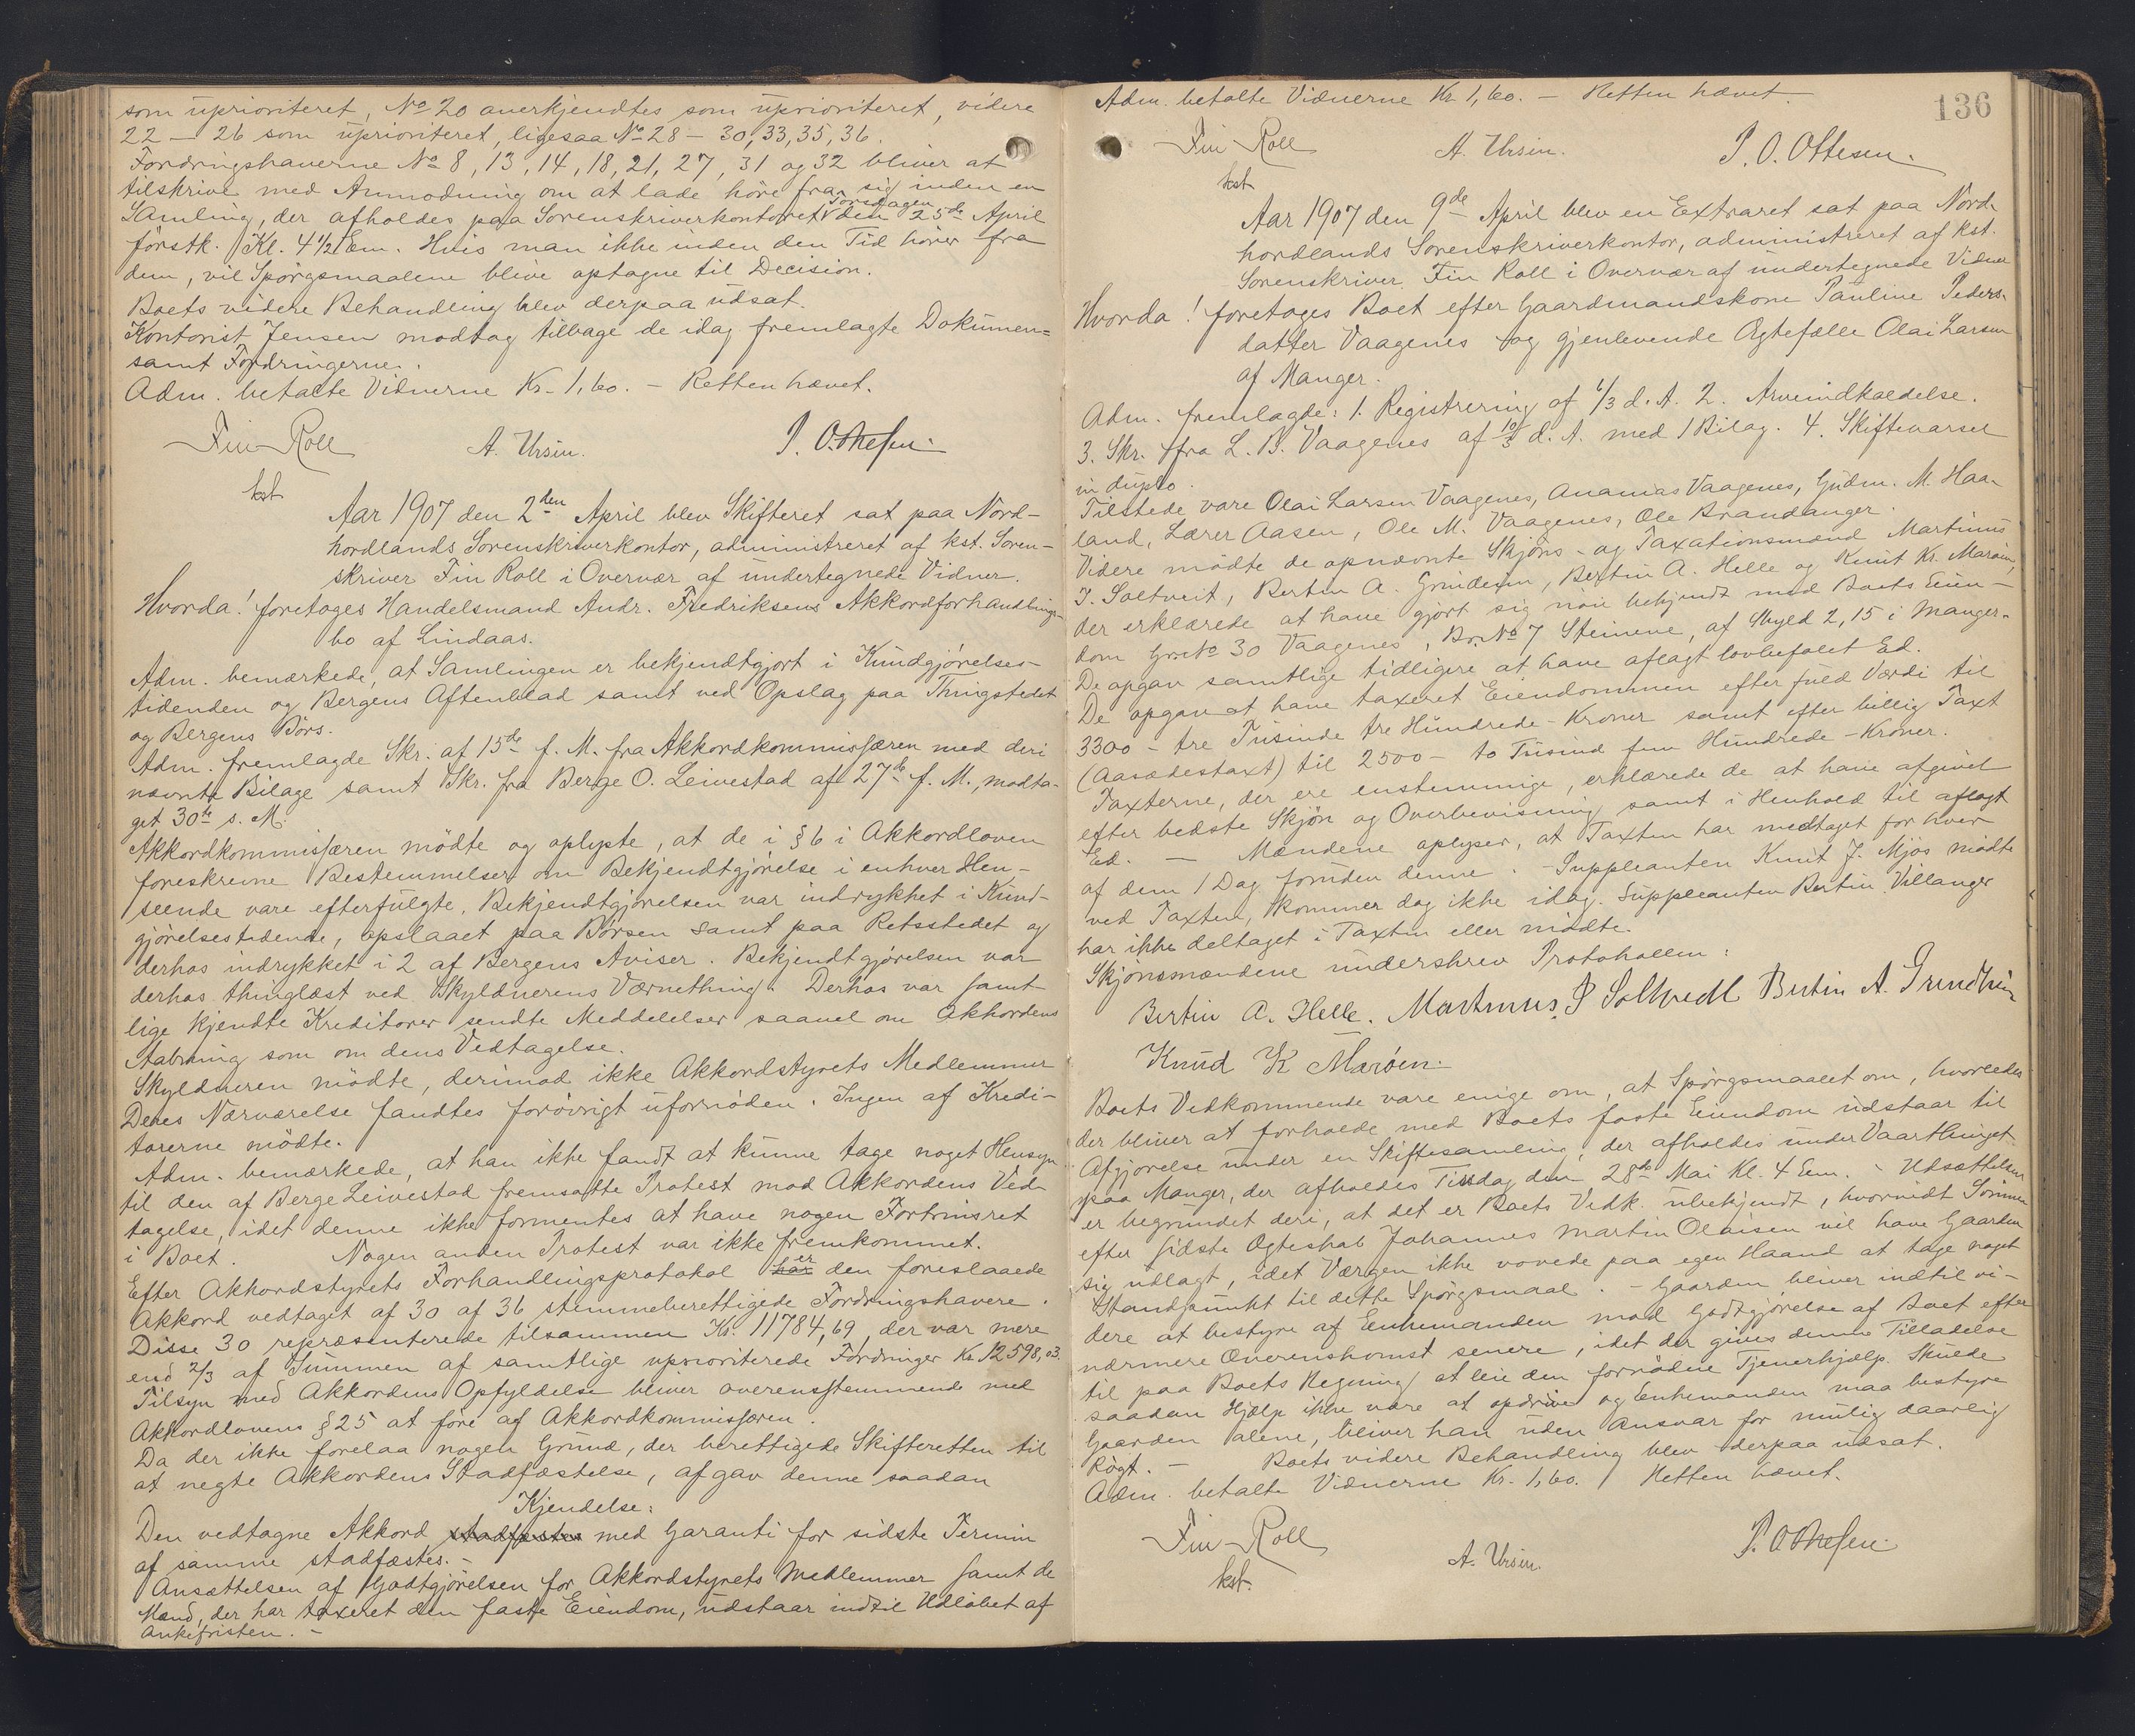 som uprioriteret, No 20 anerkjendtes som uprioriteret, videre
22 – 26 som uprioriteret, ligesaa No 28 – 30, 33, 35, 36.
Fordringshaverne No 8, 13, 14, 18, 21, 27, 31 og 32 bliver at
tilskrive med Anmodning om at lade høre fra sig inden en
Samling, der afholdes paa Sorenskriverkontoret Torsdagen den 25de April
førstk. Kl. 4 1/2 Em. Hvis man ikke inden den Tid hører fra
dem, vil Spørgsmaalene blive optagne til Decision.
Boets videre Behandling blev derpaa udsat.
Kontorist Jensen modtog tilbage de idag fremlagte Dokumen=
samt Fordringerne.
Adm. betalte Vidnerne Kr. 1,60. – Retten hævet.
Fin Roll
A. Ursin.
P. Ottesen.
kst.
Aar 1907 den 2den April blev Skifteret sat paa Nord-
hordlands Sorenskriverkontor, administreret af kst. Soren-
skriver Fin Roll i Overvær af undertegnede Vidner.
Hvorda! foretoges Handelsmand Andr. Fredriksens Akkordforhandlings-
bo af Lindaas.
Adm. bemærkede, at Samlingen er bekjendtgjort i Kundgjørelses-
tidenden og Bergens Aftenblad samt ved Opslag paa Thingstedet
og Bergens Børs.
Adm. fremlagde Skr. af 15de f. M. fra Akkordkommissæren med deri
nævnte Bilage samt Skr. fra Berge O. Leivestad af 27de f. M., modta-
get 30te s. M.
Akkordkommissæren mødte og oplyste, at de i § 6 i Akkordloven
foreskrevne Bestemmelser om Bekjendtgjørelse i enhver Hen-
seende vare efterfulgte. Bekjendtgjørelsen var indrykket i Kund-
gjørelsestidende, opslaaet paa Børsen samt paa Retsstedet og
derhos indrykket i 2 af Bergens Aviser. Bekjendtgjørelsen var
derhos thinglæst ved Skyldnerens Værnething. Derhos var samt
lige kjendte Kreditorer sendte Meddelelser saavel om Akkordens
Aabning som om dens Vedtagelse.
Skyldneren mødte, derimod ikke Akkordstyrets Medlemmer
Deres Nærværelse fandtes forøvrigt ufornøden. Ingen af Kredi-
torerne mødte.
Adm. bemærkede, at han ikke fandt at kunne tage noget Hensyn
til den af Berge Leivestad fremsatte Protest mod Akkordens Ved-
tagelse, idet denne ikke formentes at have nogen Fortrinsret
i Boet. Nogen anden Protest var ikke fremkommet.
Efter Akkordstyrets Forhandlingsprotokol har er den foreslaaede
Akkord vedtaget af 30 af 36 stemmeberettigede Fordringshavere.
Disse 30 repræsenterede tilsammen Kr. 11784,69, der var mere
end 2/3 af Summen af samtlige uprioriterede Fordringer Kr. 12598,03.
Tilsyn med Akkordens Opfyldelse bliver overensstemmende med
Akkordlovens § 25 at føre af Akkordkommissæren.
Da der ikke forelaa nogen Grund, der berettigede Skifteretten til
at negte Akkordens Stadfæstelse, afgav denne saadan
Kjendelse:
Den vedtagne Akkord stadfæstes med Garanti for sidste Termin
af samme stadfæstes. –
Ansættelsen af Godtgjørelsen for Akkordstyrets Medlemmer samt de
Mænd, der har taxeret den faste Eiendom, udstaar indtil Udløbet af
Ankefristen. –
Adm. betalte Vidnerne Kr. 1,60. – Retten hævet.
136
Fin Roll
A. Ursin.
P. O. Ottesen.
kst.
Aar 1907 den 9de April blev en Extraret sat paa Nord-
hordlands Sorenskriverkontor, administreret af kst.
Sorenskriver Fin Roll i Overvær af undertegnede Vidner
Hvorda! foretoges Boet efter Gaardmandskone Pauline Peders-
datter Vaagenes og gjenlevende Ægtefælle Olai Larsen
af Manger.
Adm. fremlagde: 1. Registrering af 6/3 d. A. 2. Arveindkaldelse.
3. Skr. fra L. B. Vaagenes af 10/3 d. A. med 1 Bilag. 4. Skiftevarsel
in duplo.
Tilstede vare Olai Larsen Vaagenes, Ananias Vaagenes, Gudm. M. Haa-
land, Lærer Aasen, Ole M. Vaagenes, Ole Brandanger.
Videre mødte de opnævnte Skjøns- og Taxationsmænd Martinus
J. Soltveit, Bertin A. Grindeim, Bertin A. Helle og Knut Kr. Marøen,
der erklærede at have gjort sig nøie bekjendt med Boets Eien-
dom Gr. No 30 Vaagenes, Br. No 7 Steinene, af Skyld 2,15 i Manger.
De opgav samtlige tidligere at have aflagt lovbefalet Ed.
De opgav at have taxeret Eiendommen efter fuld Værdi til
3300 – tre Tusinde tre Hundrede – Kroner samt efter billig Taxt
(Aasædestaxt) til 2500 – to Tusind fem Hundrede – Kroner.
Taxterne, der ere enstemmige, erklærede de at have afgivet
efter bedste Skjøn og Overbevisning samt i Henhold til aflagt
Ed. – Mændene oplyser, at Taxten har medtaget for hver
af dem 1 Dag foruden denne. – Suppleanten Knut J. Mjøs mødte
ved Taxten, kommer dog ikke idag. Suppleanten Bertin Villanger
har ikke deltaget i Taxten eller mødte.
Skjønsmændene underskrev Protokollen:
Bertin A. Helle. Martinus J Soltvedt Bertin A. Grindheim
Knud K Marøen.
Boets Vedkommende vare enige om, at Spørgsmaalet om, hvorledes
der bliver at forholde med Boets faste Eiendom udstaar til
Afgjørelse under en Skiftesamling, der afholdes under Vaarthinget
paa Manger, der afholdes Tirsdag den 28de Mai Kl. 4 Em. – Udsættelsen
er begrundet deri, at det er Boets Vedk. ubekjendt, hvorvidt Sønnen
efter sidste Ægteskab Johannes Martin Olaisen vil have Gaarden
sig udlagt, idet Værgen ikke vovede paa egen Haand at tage noget
Standpunkt til dette Spørgsmaal. – Gaarden bliver indtil vi-
dere at bestyre af Enkemanden mod Godtgjørelse af Boet efter
nærmere Overenskomst senere, idet der gives denne Tilladelse
til paa Boets Regning at leie den fornødne Tjenerhjælp. Skulde
saadan Hjælp ikke være at opdrive og Enkemanden maa bestyre
Gaarden alene, bliver han uden Ansvar for mulig daarlig
Røgt. – Boets videre Behandling blev derpaa udsat.
Adm. betalte Vidnerne Kr. 1,60. Retten hævet.
Fin Roll
A. Ursin.
P. Ottesen.
kst.